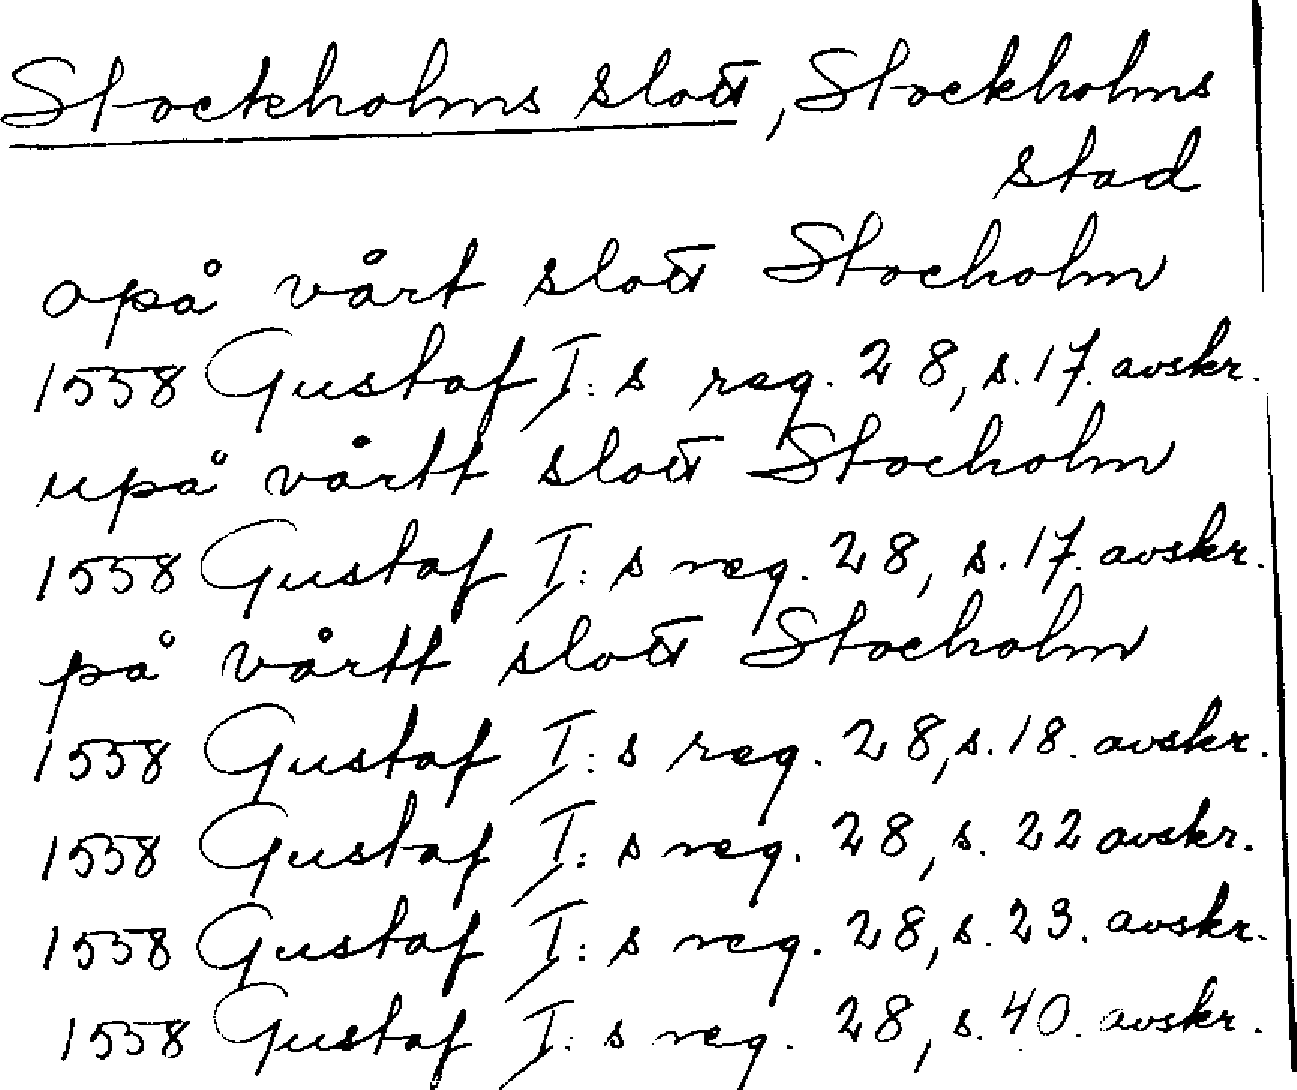 Stockholms slott, Stockholms
stad
opå vårt slott Stocholm
1558 Gustaf I:s reg. 28, s. 17. avskr.
upå vårtt slott Stocholm
1558 Gustaf I:s reg. 28, s. 17. avskr.
på vårtt slott Stocholm
1558 Gustaf I:s reg. 28, s. 18. avskr.
1558 Gustaf I:s reg. 28, s. 22 avskr.
1558 Gustaf I:s reg. 28, s. 23. avskr.
1558 Gustaf I:s reg. 28, s. 40. avskr.